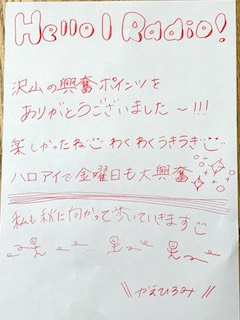 Hello I Radio!
沢山の興奮ポインツを
ありがとうございました〜!!!
楽しかったね わくわくうきうき
ハロアイで金曜日も大興奮
私も秋に向かって歩いていきます
\\かえひろみ//